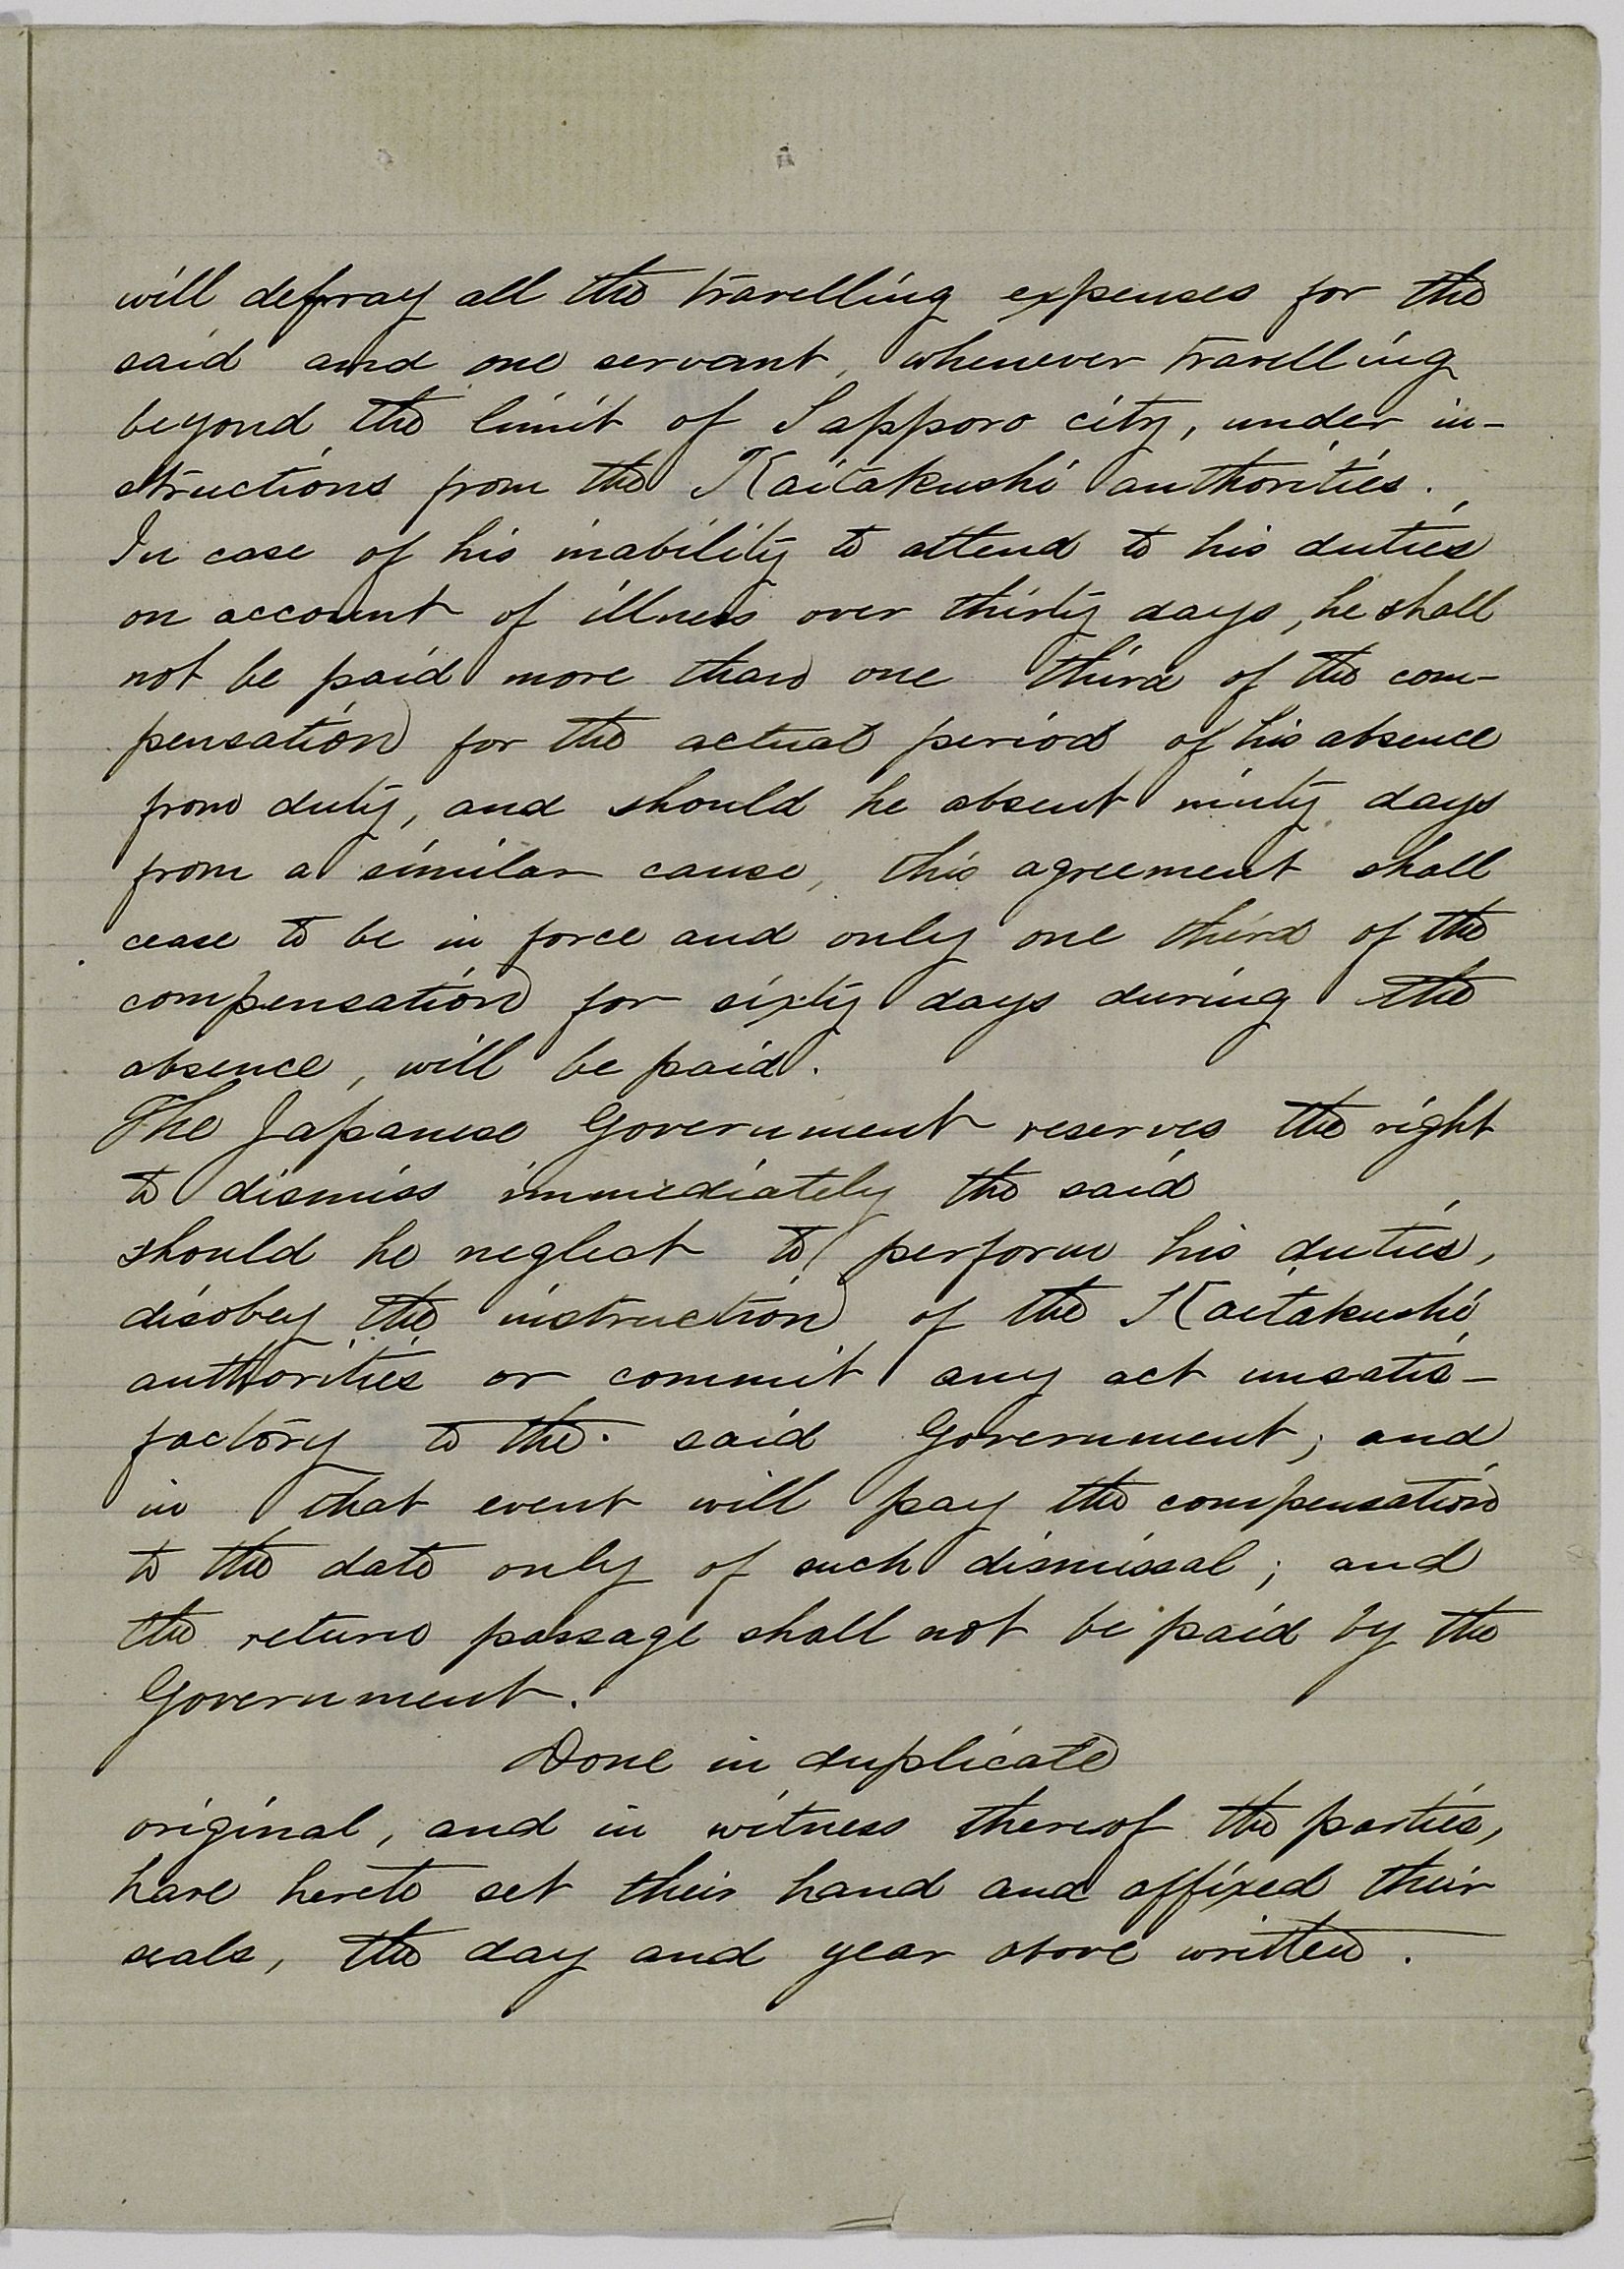 will defray all the travelling expenses for the
said and one servant, whenever travelling
beyond the limit of Sapporo city, under in-
structions from the Kaitakushi authorities.
In case of his inability to attend to his duties
on account of illness over thirty days, he shall
not be paid more than one third of the com-
pensation for the actual period of his absence
from duty, and should he absent ninty days
from a similar cause, this agreement shall
cease to be in force and only one third of the
compensation for sixty days during the
absence, will be paid.
The Japanese Government reserves the right
to dismiss immediately the said
should he neglect to perform his duties,
disobey the instruction of the Kaitakushi
authorities or commit any act unsatis-
factory to the said Government; and
in that event will pay the compensation
to the date only of such dismissal; and
the return passage shall not be paid by the
Government.
Done in duplicate
original, and in witness thereof the parties,
have hereto set their hand and affixed their
seals, the day and year above written.